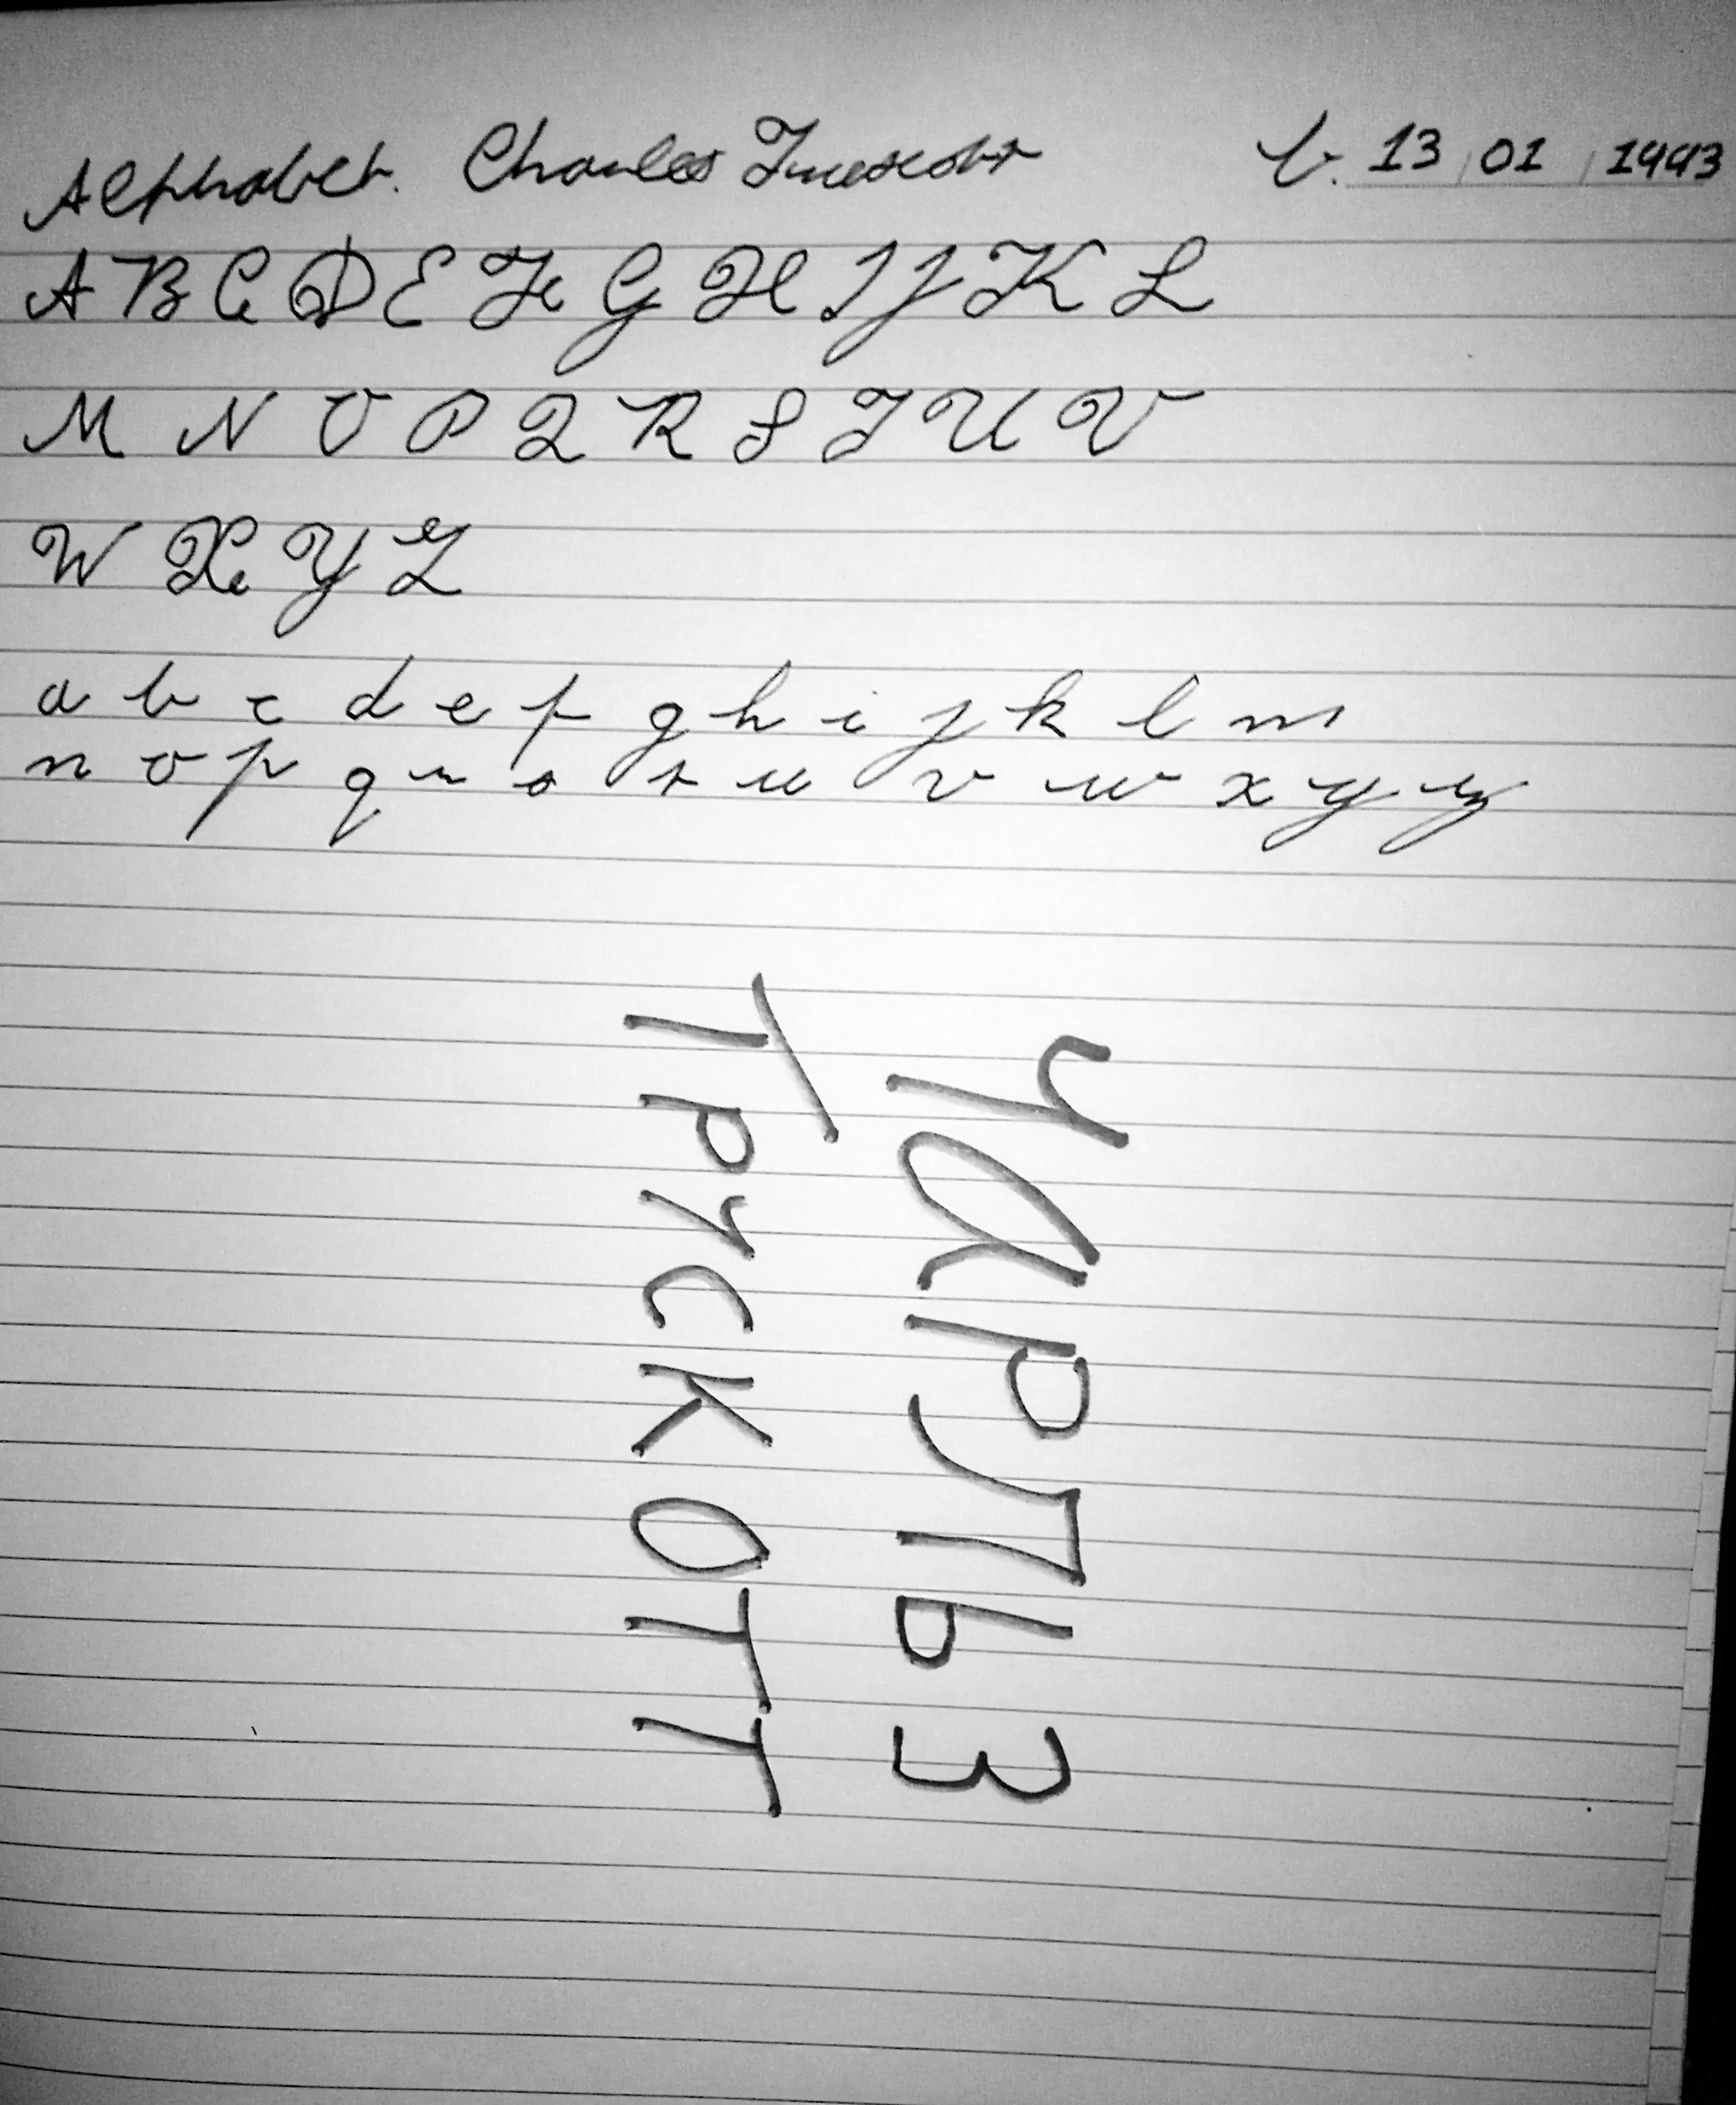 Alphabet. Charles Truscott b. 13/01/1993
A B C D E F G H I J K L
M N O P Q R S T U V
W X Y Z
a b c d e f g h i j k l m
n o p q r s t u v w x y z
ЧАРЛЬЗ
ТРУСКОТТ